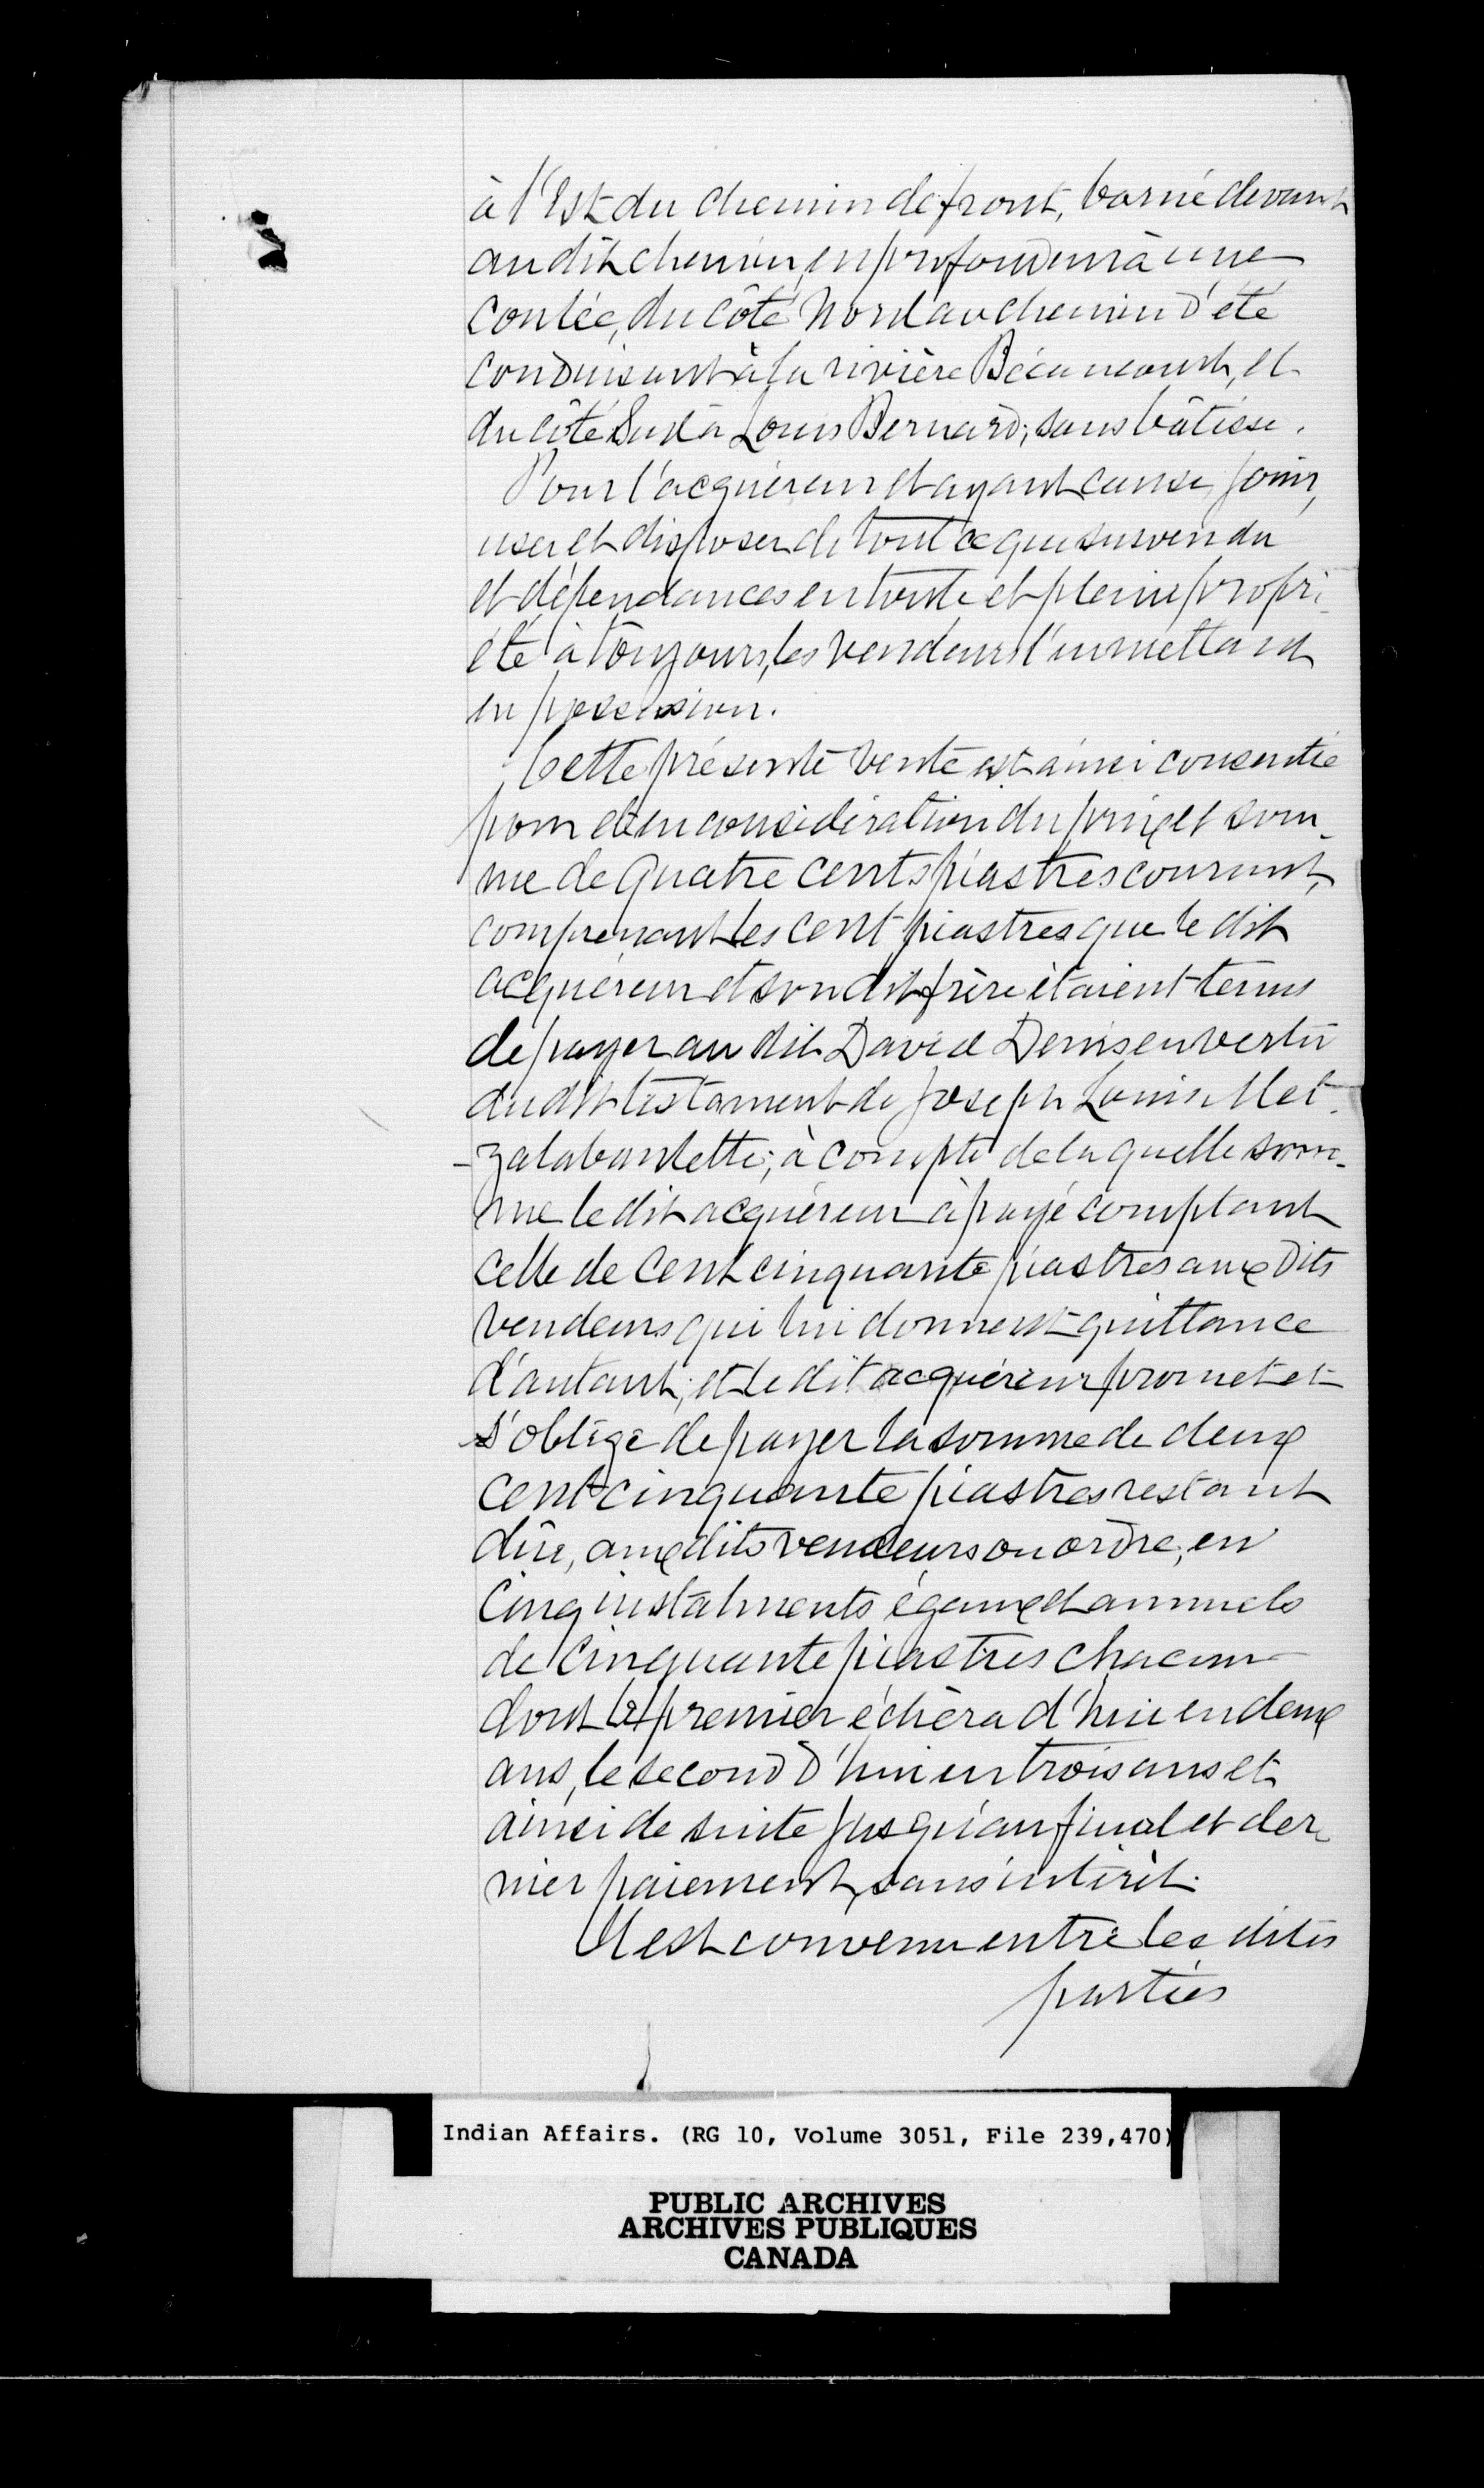 à l'Est du chemin de front, borné devant
au dit chemin, en profondeur à une
coulée, du côté Nord au chemin d'été
conduisant à la rivière Bécancourt, et
du côté Sud à Louis Bernard; sans bâtisse.
Pour l'acquéreur et ayant cause jouir,
user et disposer de tout ce que susvendu
et dépendances en toute et pleine propri-
été à toujours, les vendeurs l'en mettant
en possession.
Cette présente vente est ainsi consentie
pour et en considération du prix et som-
me de quatre cents piastres courant,
comprenant les cent piastres que le dit
acquéreur et son dit frère étaient tenus
de payer au dit David Denis en vertu
du dit testament de Joseph Louis Met-
-zalabanlette; à compte de laquelle som-
me le dit acquéreur a payé comptant
celle de cent cinquante piastres aux dits
vendeurs qui lui donnent quittance
d'autant; et le dit acquéreur promet et
s'oblige de payer la somme de deux
cent cinquante piastres restant
dûe, aux dits vendeurs ou ordre, en
cinq instalments égaux et annuels
de cinquante piastres chacun
dont le premier échèra d'hui en deux
ans, le second d'hui en trois ans et
ainsi de suite jusqu'au final et der-
nier paiement, sans intérêt.
Il est convenu entre les dites
parties
Indian Affairs. (RG 10, Volume 3051, File 239,470)
PUBLIC ARCHIVES
ARCHIVES PUBLIQUES
CANADA